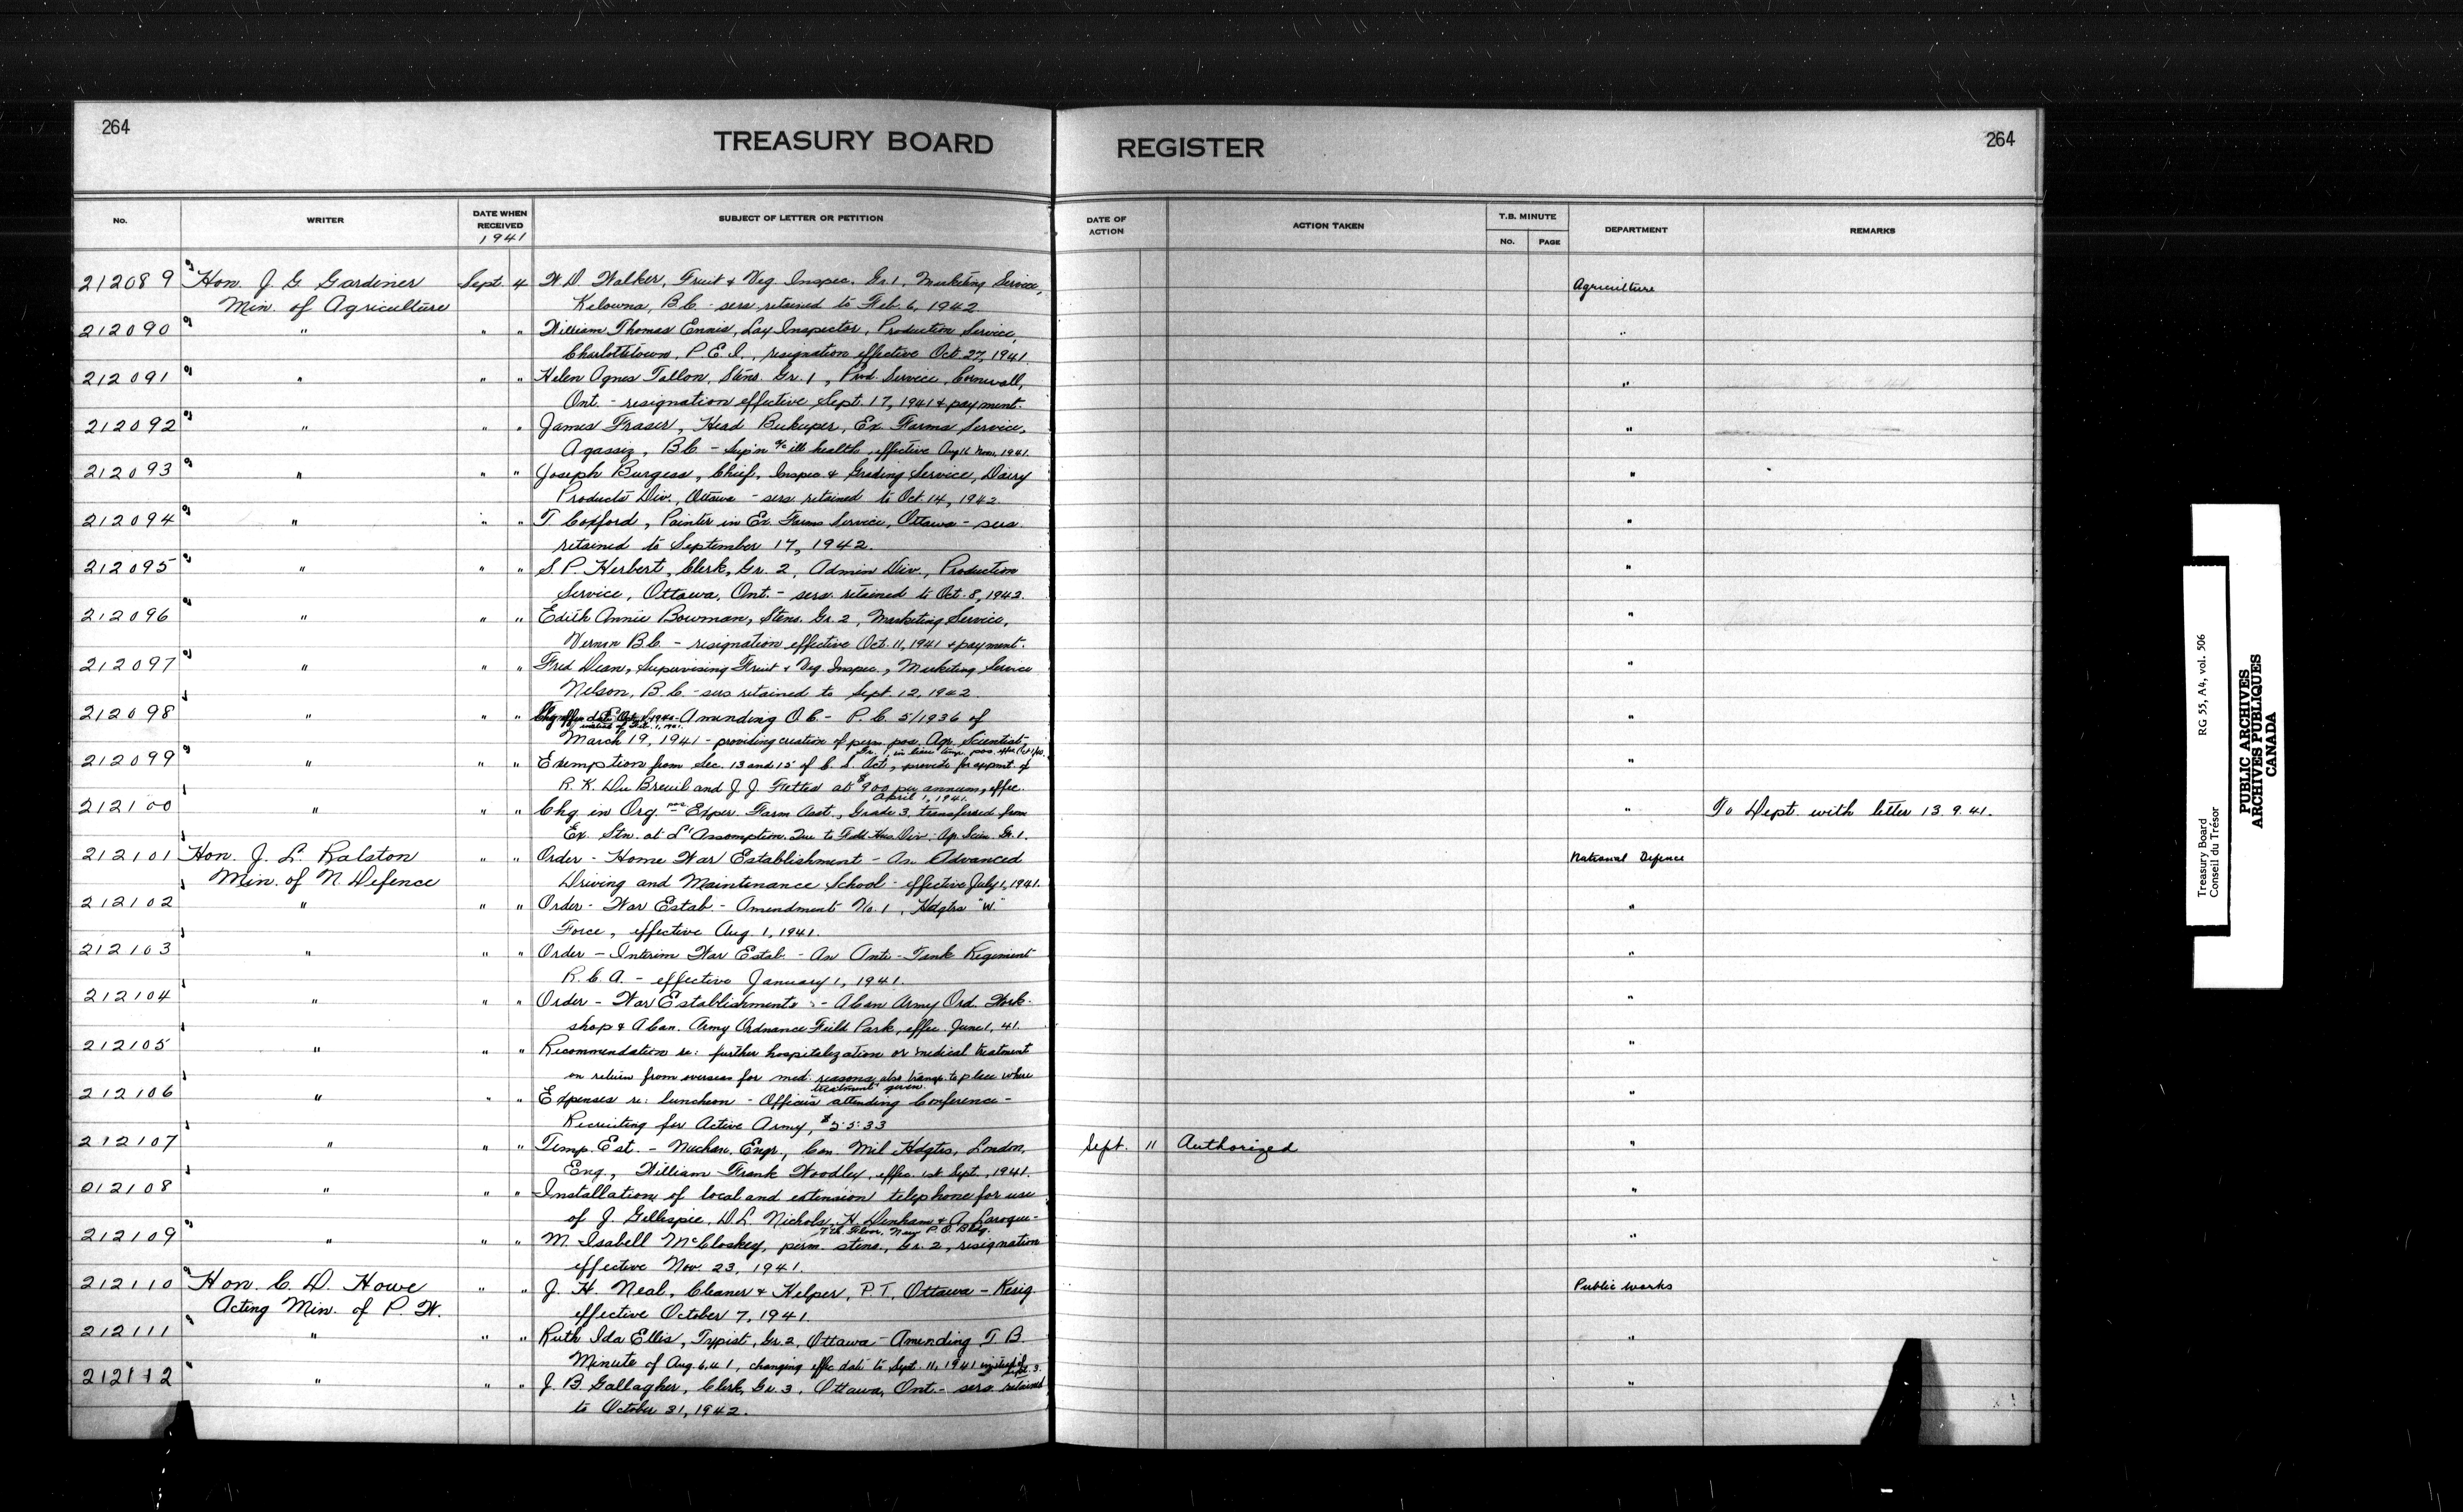 264
TREASURY BOARD REGISTER
264
No. WRITER DATE WHEN RECEIVED SUBJECT OF LETTER OR PETITION DATE OF ACTION ACTION TAKEN T.B. MINUTE No. PAGE DEPARTMENT REMARKS
1941
212089 Hon. J. G. Gardiner Sept. 4 W. D. Walker, Fruit & Veg. Inspec. Gr. 1, Marketing Service, Agriculture
Min. of Agriculture Kelowna, B.C. - sers. retained to Feb. 6, 1942.
212090 " " " William Thomas Ennis, Lay Inspector, Production Service, "
Charlottetown, P.E.I., resignation effective Oct. 27, 1941.
212091 " " " Helen Agnes Tallon, Steno. Gr. 1, Prod. Service, Cornwall, "
Ont. - resignation effective Sept. 17, 1941 & payment.
212092 " " " James Fraser, Head Bukuper, Ex. Farms Service, "
Agassiz, B.C. - Sup'n a/c ill health, effective Aug 16 1941.
212093 " " " Joseph Burgess, Chief, Inspec. & Grading Service, Dairy "
Products Div., Ottawa - sers. retained to Oct. 14, 1942.
212094 " " " T. Coxford, Painter in Ex. Farms Service, Ottawa - sers. "
retained to September 17, 1942.
212095 " " " S. P. Herbert, Clerk, Gr. 2, Admin Div., Production "
Service, Ottawa, Ont. - sers. retained to Oct. 8, 1942.
212096 " " " Edith Annie Bowman, Steno. Gr. 2, Marketing Service, "
Vernon B.C. - resignation effective Oct. 11, 1941 & payment.
212097 " " " Fred Dean, Supervising Fruit & Veg. Inspec., Marketing Service "
Nelson, B.C. - sers retained to Sept. 12, 1942.
212098 " " " Chg effec date Oct. 1, 1940 - Amending O.C. - P.C. 5/1936 of "
instead of Feb. 1, 1941
March 19, 1941 - providing creation of perm. pos. Agr. Scientist,
Gr. 1, in lieu temp. pos. effec. Oct 1/40.
212099 " " " Exemption from Sec. 13 and 15 of C. S. Act, provide for appmt. of "
R. K. Du Breuil and J. J. Fettes at $900 per annum, effec.
April 1, 1941.
212100 " " " Chg. in Org. pos. Exper. Farm Asst., Grade 3, transferred from " To Dept. with letter 13.9.41.
Ex. Stn. at L'Assomption, Que to Field Hus. Div. Ag. Scien. Gr. 1.
212101 Hon. J. L. Ralston " " Order - Home War Establishment - An Advanced National Defence
Min. of N. Defence Driving and Maintenance School - effective July 1, 1941.
212102 " " " Order - War Estab. - Amendment No. 1, Hdqtrs "W" "
Force, effective Aug. 1, 1941.
212103 " " " Order - Interim War Estab. - An Anti-Tank Regiment "
R.C.A. - effective January 1, 1941.
212104 " " " Order - War Establishments :- A Can Army Ord. Work- "
shop & A Can. Army Ordnance Field Park, effec. June 1, 41.
212105 " " " Recommendation re: further hospitalization or medical treatment "
on return from overseas for med. reasons, also transp. to place where
treatment given.
212106 " " " Expenses re: luncheon - Officers attending Conference - "
Recruiting for Active Army, $55.33
212107 " " " Temp. Est. - Mechan. Engr., Can. Mil Hdqtrs, London, Sept. 11 Authorized "
Eng., William Frank Woodley, effec. 1st Sept., 1941.
012108 " " " Installation of local and extension telephone for use "
of J. Gillespie, D. L. Nichols, H. Denham & A. Laroque -
7th Floor, New P.O. Bldg.
212109 " " " M. Isabell McCloskey, perm. steno., Gr. 2, resignation "
effective Nov. 23, 1941.
212110 Hon. C. D. Howe " " J. H. Neal, Cleaner & Helper, P.T., Ottawa - Resig. Public Works
Acting Min. of P. W. effective October 7, 1941.
212111 " " " Ruth Ida Ellis, Typist, Gr. 2, Ottawa - Amending T. B. "
Minute of Aug. 6, 41, changing effc date to Sept. 11, 1941 instead of Sept. 3.
212112 " " " J. B. Gallagher, Clerk, Gr. 3, Ottawa, Ont. - sers. retained "
to October 31, 1942.
Treasury Board RG 55, A4, vol. 506
Conseil du Trésor
PUBLIC ARCHIVES
ARCHIVES PUBLIQUES
CANADA